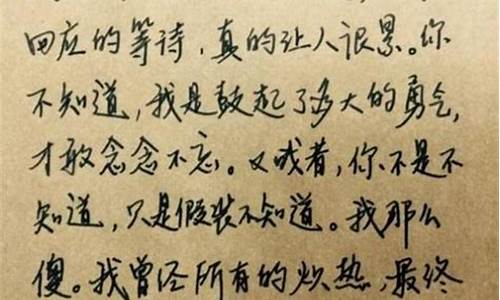 回应的等待，真的让人很累。你
不知道，我是鼓起了多大的勇气，
才敢念念不忘。又或者，你不是不
知道，只是假装不知道。我那么
傻。我曾经所有的炽热，最终